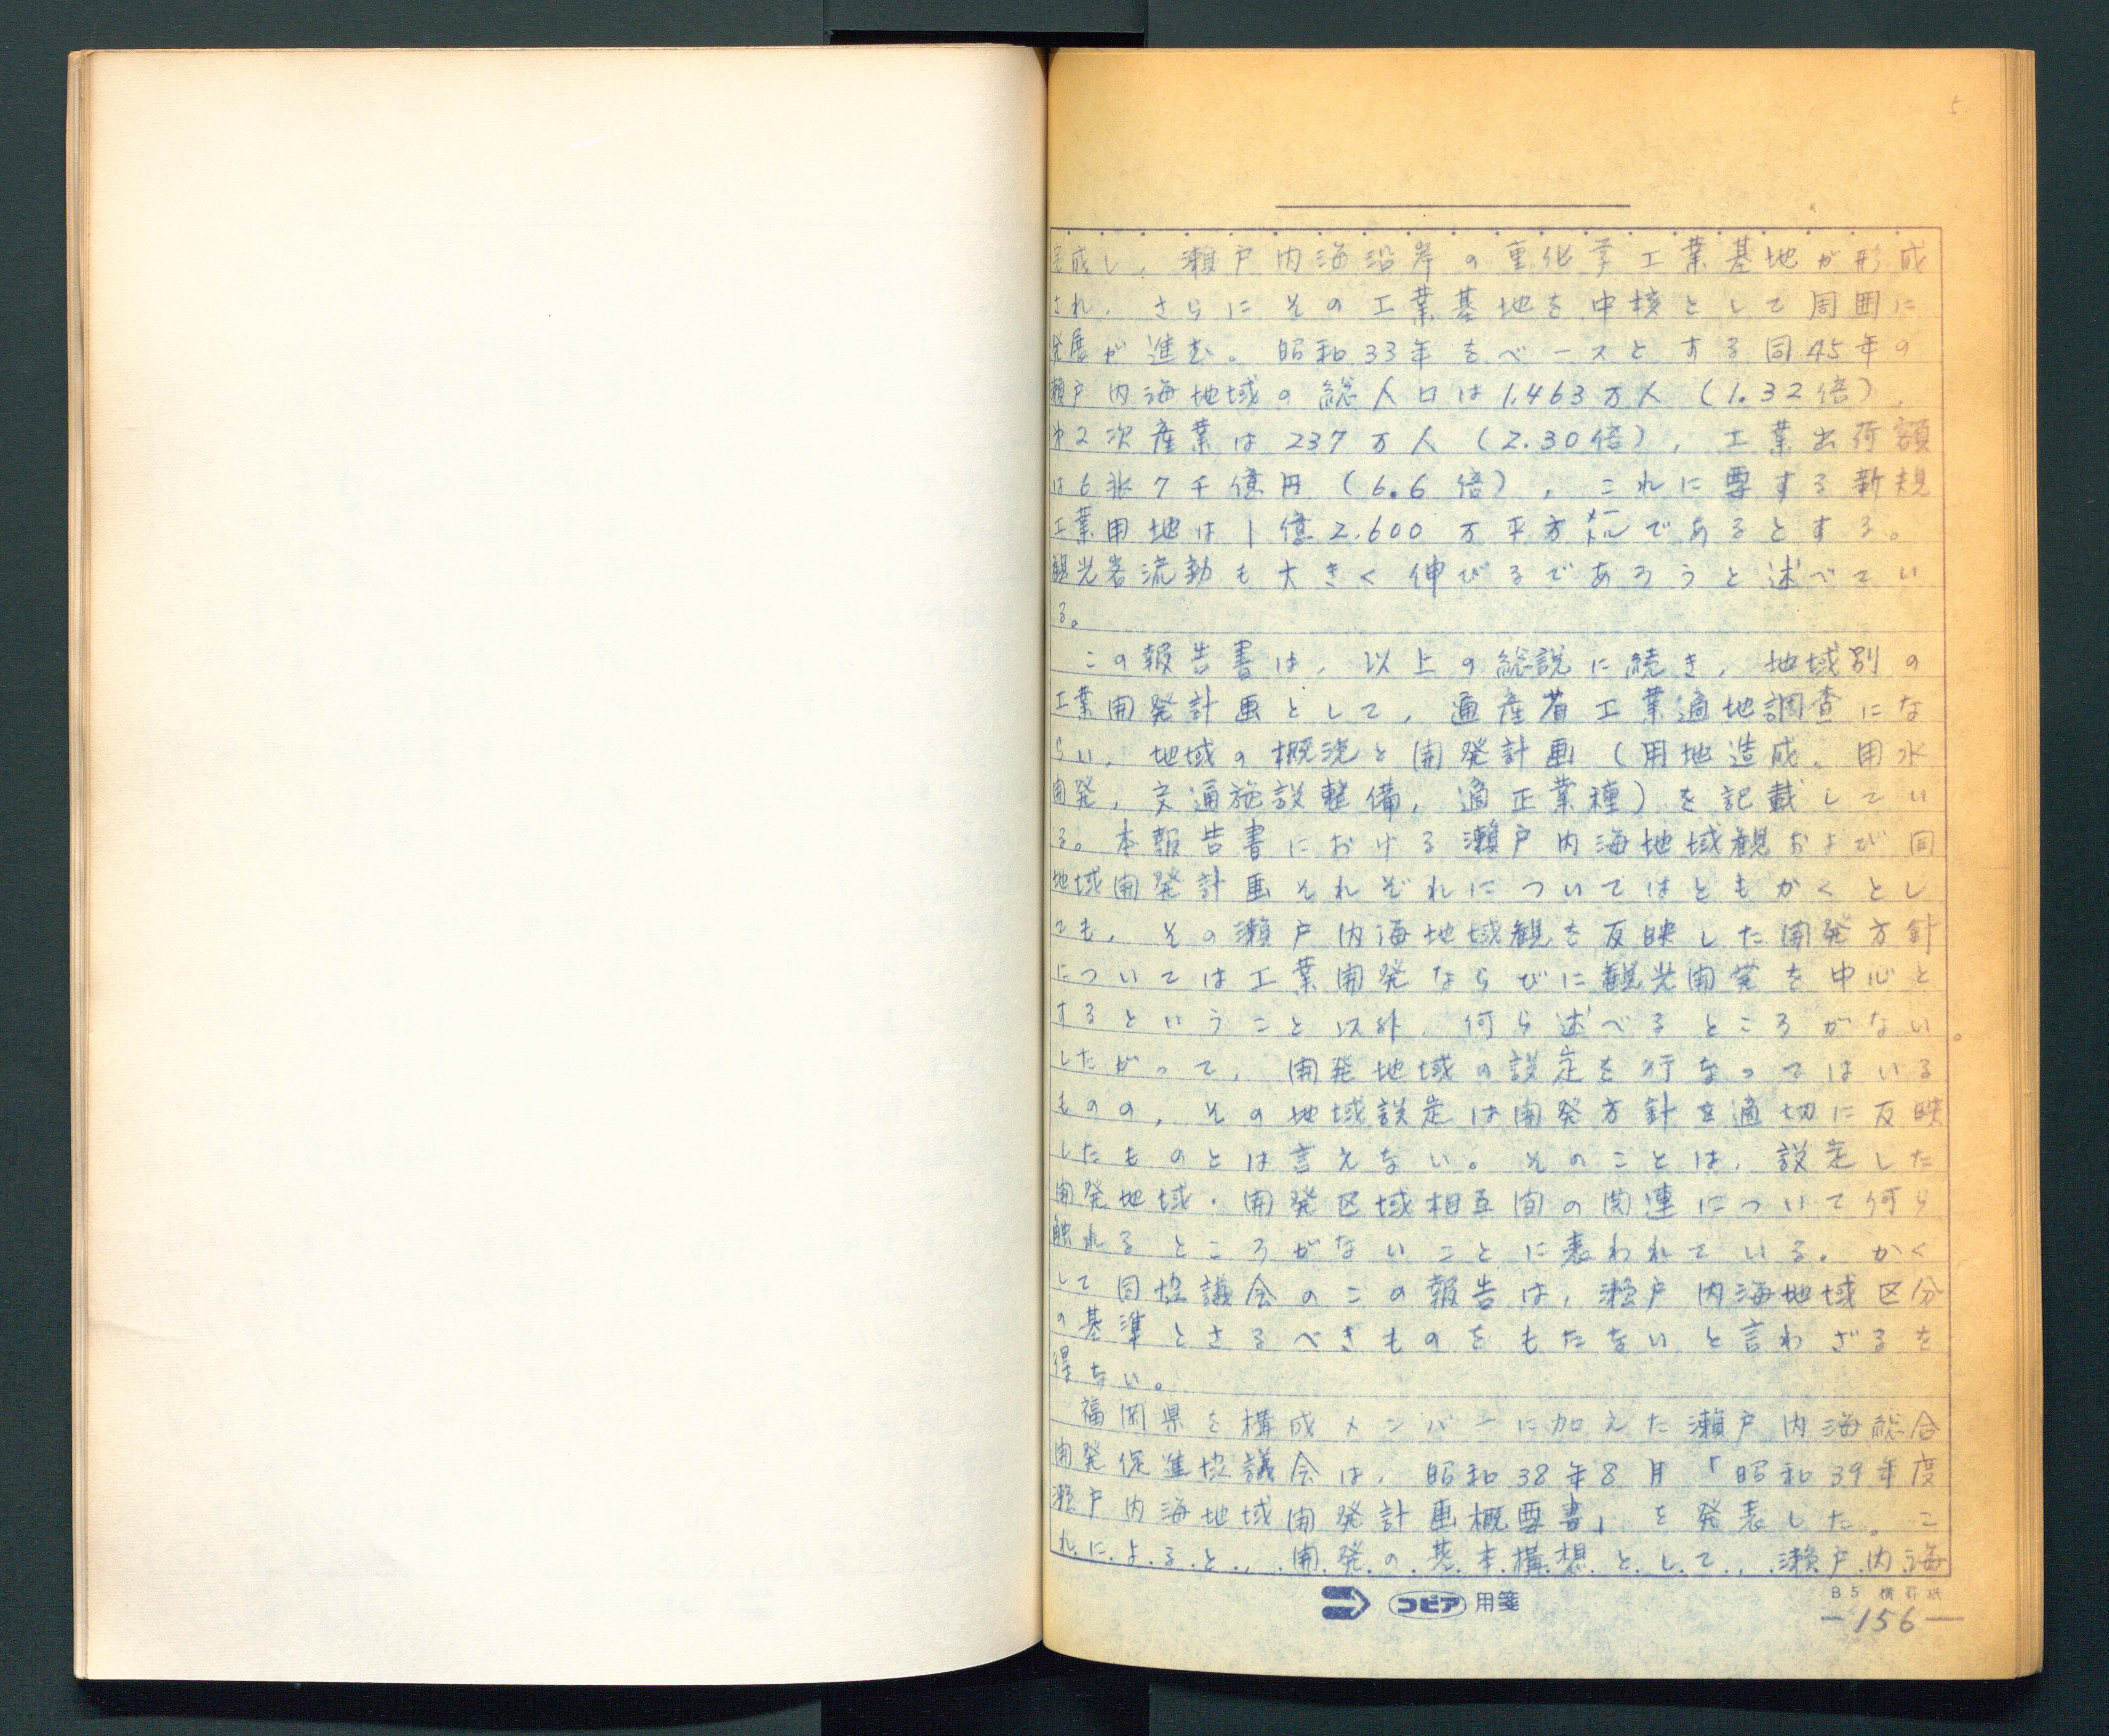 5
完成し，瀬戸内海沿岸の重化学工業基地が形成
され，さらにその工業基地を中核として周囲に
発展が進む。昭和33年をベースとする同45年の
瀬戸内海地域の総人口は1,463万人（1.32倍），
才2次産業は237万人（2.30倍），工業出荷額
は6兆7千億円（6.6倍），これに要する新規
工業用地は1億2,600万平方メートルであるとする。
観光客流動も大きく伸びるであろうと述べてい
る。
この報告書は，以上の総説に続き，地域別の
工業開発計画として，通産省工業適地調査にな
らい，地域の概況と開発計画（用地造成，用水
開発，交通施設整備，適正業種）を記載してい
る。本報告書における瀬戸内海地域観および同
地域開発計画それぞれについてはともかくとし
ても，その瀬戸内海地域観を反映した開発方針
については工業開発ならびに観光開発を中心と
するということ以外，何ら述べるところがない。
したがって，開発地域の設定を行なってはいる
ものの，その地域設定は開発方針を適切に反映
したものとは言えない。そのことは，設定した
開発地域・開発区域相互間の関連について何ら
触れるところがないことに表われている。かく
して同協議会のこの報告は，瀬戸内海地域区分
の基準とさるべきものをもたないと言わざるを
得ない。
福岡県を構成メンバーに加えた瀬戸内海総合
開発促進協議会は，昭和38年8月「昭和39年度
瀬戸内海地域開発計画概要書」を発表した。こ
れによると，開発の基本構想として，瀬戸内海
コピア 用箋
B5 横罫紙
—156—